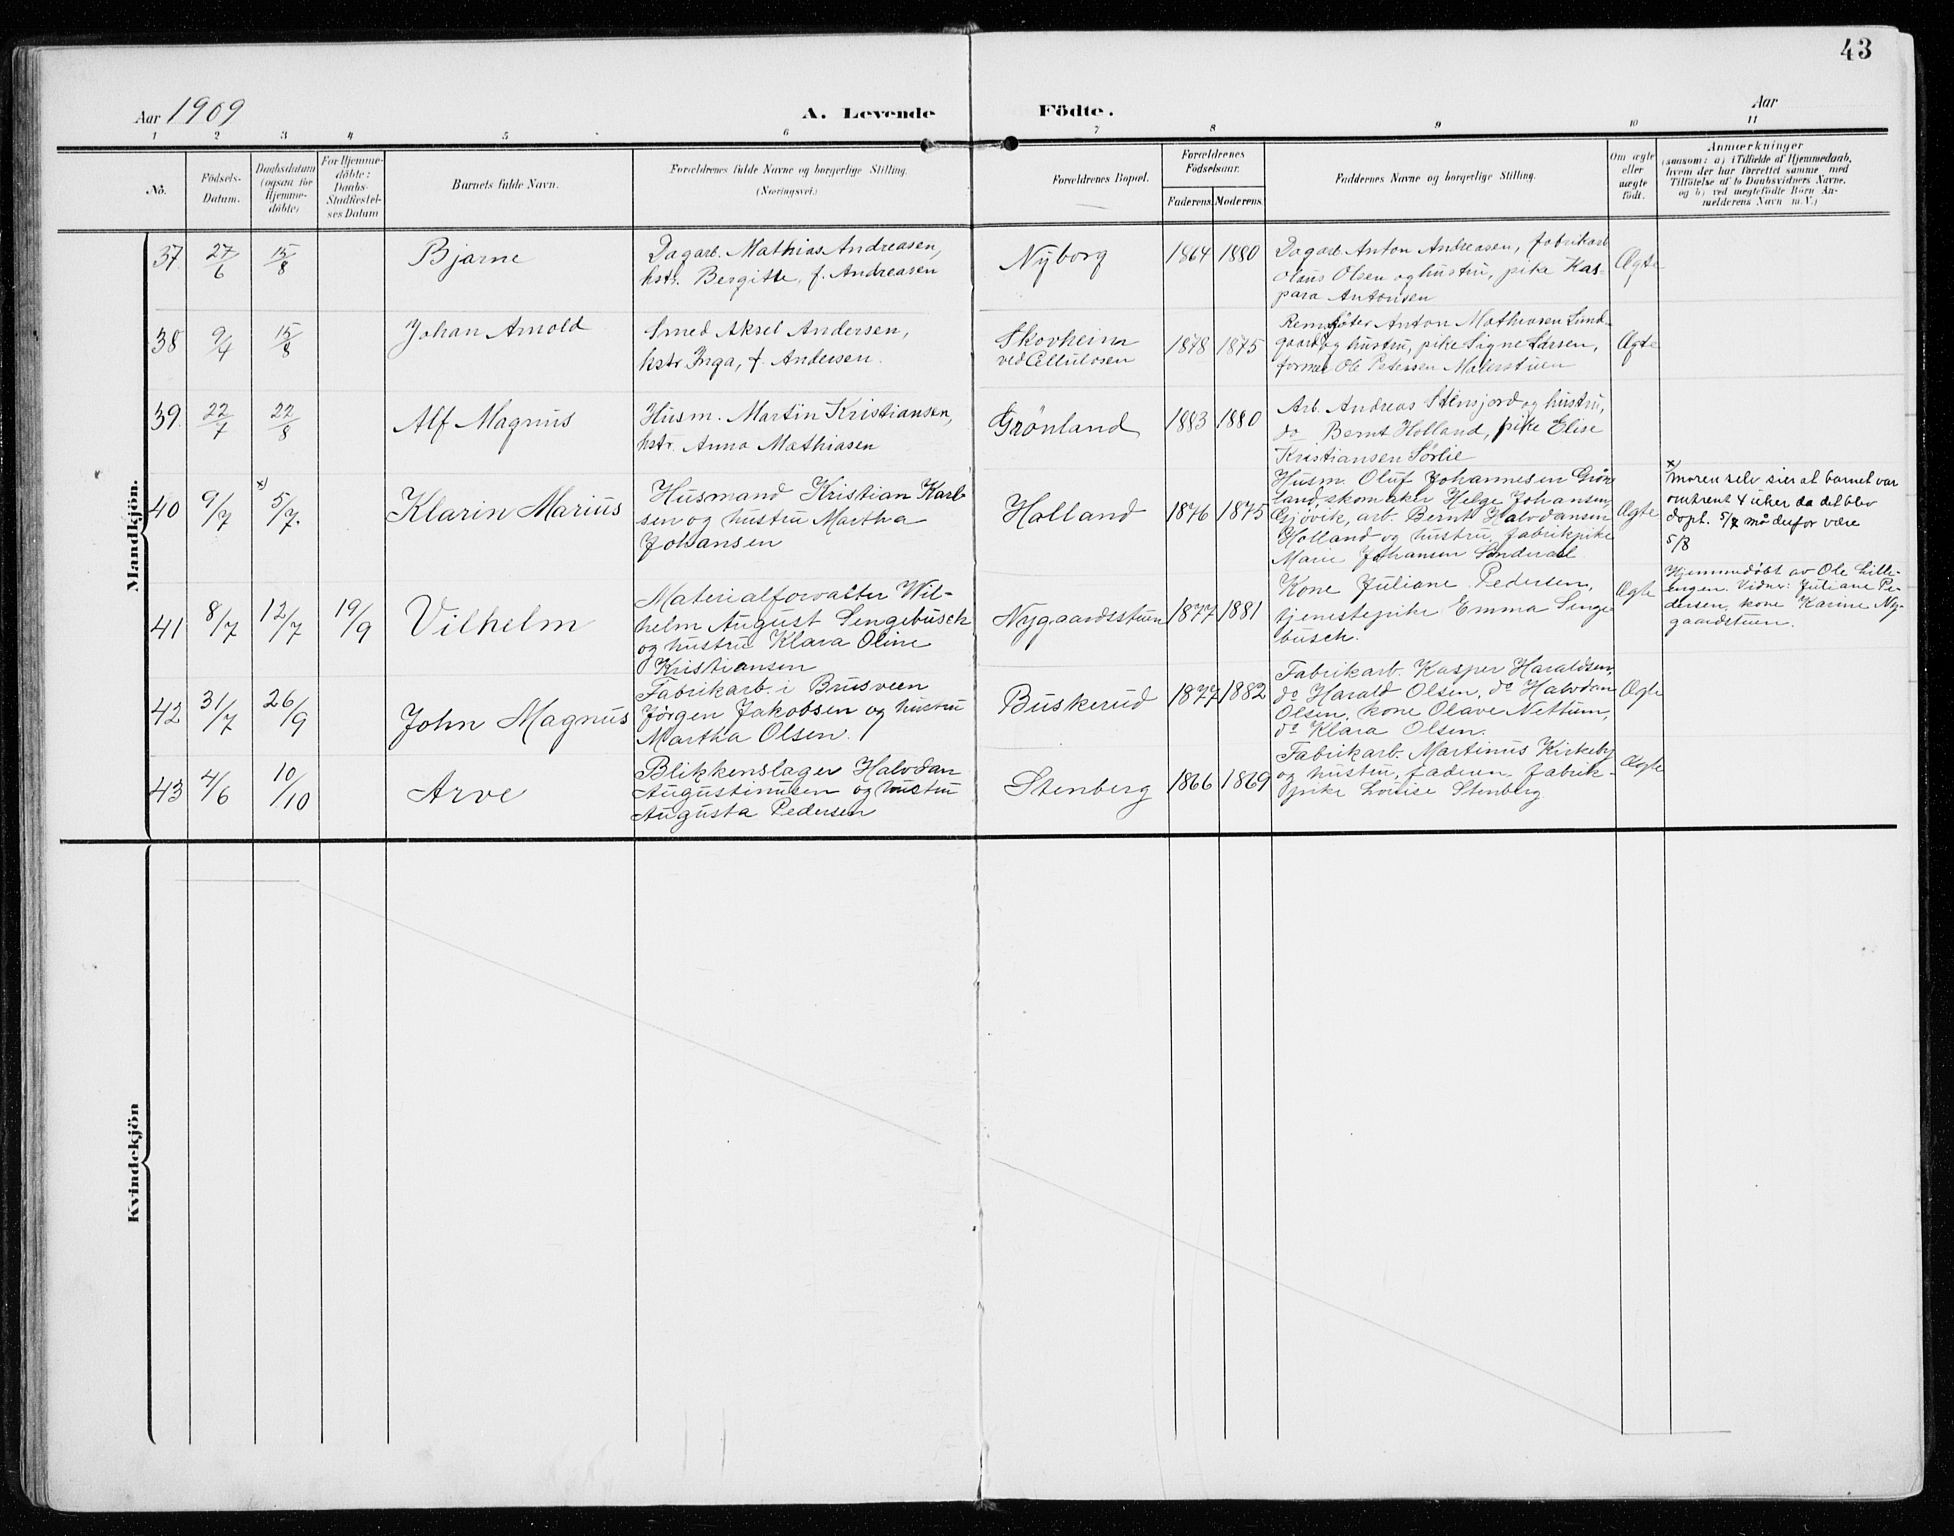 43
Aar 1909 A. Levende Födte. Aar
1 2 3 4 5 6 7 8 9 10 11
No. Födsels-Datum. Daabsdatum (ogsaa for Hjemme-döbte) For Hjemme-döbte: Daabs-Stadfæstel-ses Datum Barnets fulde Navn. Forældrenes fulde Navne og borgerlige Stilling. (Næringsvei.) Forældrenes Bopæl. Forældrenes Födselsaar. Faderens Moderens. Faddernes Navne og borgerlige Stilling. Om ægte eller uægte födt. Anmærkninger (saasom: a) i Tilfælde af Hjemmedaab, hvem der har forrettet samme med Tilföielse af to Daabsvidners Navne, og b) ved uægtefödte Börn An-melderens Navn m.V.)
Mandkjön.
37 27/6 15/8 Bjarne
Dagarb. Mathias Andreasen,
hstr. Bergitte, f. Andreasen
Nyborg 1864 1880
Dagarb. Anton Andreasen, fabrikarb.
Olaus Olsen og hustru, pike Kas-
para Antonsen
Ægte
38 9/4 15/8 Johan Arnold
Smed Aksel Andersen,
hstr. Inga, f. Andersen.
Skovheim
ved Cellulosen
1878 1875
Anton Mathiasen Lund-
gaard og hustru, pike Signe Larsen,
former Ole Petersen Malerstuen
Ægte
39 22/7 22/8 Alf Magnus
Husm. Martin Kristiansen,
hstr. Anna Mathiasen
Grønland 1883 1880
Arb. Andreas Stensjord og hustru,
do Bernt Holland, pike Elise
Kristiansen Sørlie
40 9/7 x) 5/7. Klarin Marius
Husmand Kristian Karl-
sen og hustru Martha
Johansen
Holland 1876 1875
Husm. Oluf Johannesen Grøn-
land, skomaker Helge Johansen,
Gjøvik, arb. Bernt Halvdansen
Holland og hustru, fabrikpike
Marie Johansen Sønderal
Ægte
x)
moren selv sier at barnet var
omtrent 4 uker da det blev
døpt. 5/7 må derfor være
5/8
41 8/7 12/7 19/9 Vilhelm
Materialforvalter Wil-
helm August Sengebusch
og hustru Klara Oline
Kristiansen
Nygaardsstuen 1877 1881
Kone Juliane Pedersen,
tjenestepike Emma Senge
busch.
Ægte
Hjemmedøbt av Ole Lille-
engen. Vidner: Juliane Pe-
dersen, kone Karine Ny-
gaardstuen.
42 31/7 26/9 John Magnus
Fabrikarb. i Brusveen
Jørgen Jakobsen og hustru
Martha Olsen.
Buskerud 1877 1882
Fabrikarb. Kasper Haraldsen,
do Harald Olsen, do Halvdan
Olsen, kone Olave Nettum,
do Klara Olsen.
Ægte
43 4/6 10/10 Arve
Blikkenslager Halvdan
Augustinusen og hustru
Augusta Pedersen
Stenberg 1866 1869
Fabrikarb. Martinus Kirkeby
og hustru, faderen, fabrik-
pike Louise Stenberg
Ægte
Kvindekjön